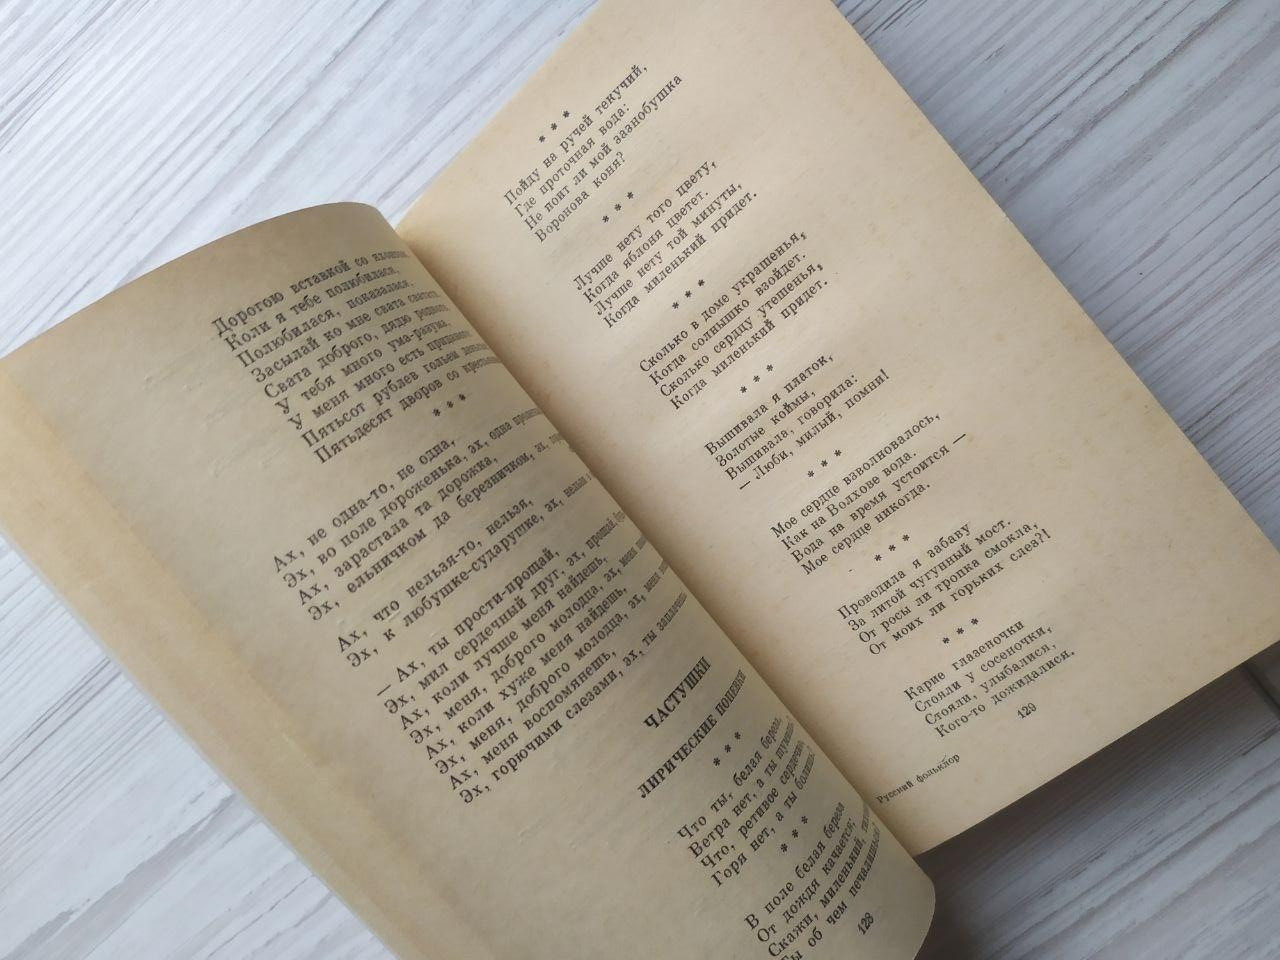 Дорогою вставкой со
Коли я тебе полюбилася,
Полюбилася, показалася,
Засылай ко мне свата сватать,
Свата доброго, дядю родного.
У тебя много ума-разума,
У меня много есть приданого:
Пятьсот рублев гольем
Пятьдесят дворов со
* * *
Ах, не одна-то, не одна,
Эх, во поле дороженька, эх, одна
Ах, зарастала та дорожка,
Эх, ельничком да березничком, эх,
Ах, что нельзя-то, нельзя,
Эх, к любушке-сударушке, эх, нельзя
— Ах, ты прости-прощай,
Эх, мил сердечный друг, эх, прощай,
Ах, коли лучше меня найдешь,
Эх, меня, доброго молодца, эх, меня
Ах, коли хуже меня найдешь,
Эх, меня, доброго молодца, эх, меня
Ах, меня воспомянешь,
Эх, горючими слезами, эх, ты заплачешь
ЧАСТУШКИ
ЛИРИЧЕСКИЕ ПОПЕВКИ
* * *
Что ты, белая береза,
Ветра нет, а ты шумишь?
Что, ретивое сердечко,
Горя нет, а ты болишь?
* * *
В поле белая береза
От дождя качается;
Скажи, миленький,
Ты об чем печалишься?
128
* * *
Пойду на ручей текучий,
Где проточная вода:
Не поит ли мой зазнобушка
Воронова коня?
* * *
Лучше нету того цвету,
Когда яблоня цветет.
Лучше нету той минуты,
Когда миленький придет.
* * *
Сколько в доме украшенья,
Когда солнышко взойдет.
Сколько сердцу утешенья,
Когда миленький придет.
* * *
Вышивала я платок,
Золотые коймы,
Вышивала, говорила:
— Люби, милый, помни!
* * *
Мое сердце взволновалось,
Как на Волхове вода.
Вода на время устоится —
Мое сердце никогда.
* * *
Проводила я забаву
За литой чугунный мост.
От росы ли тропка смокла,
От моих ли горьких слез?!
* * *
Карие глазеночки
Стояли у сосеночки,
Стояли, улыбалися,
Кого-то дожидалися.
129
Русский фольклор